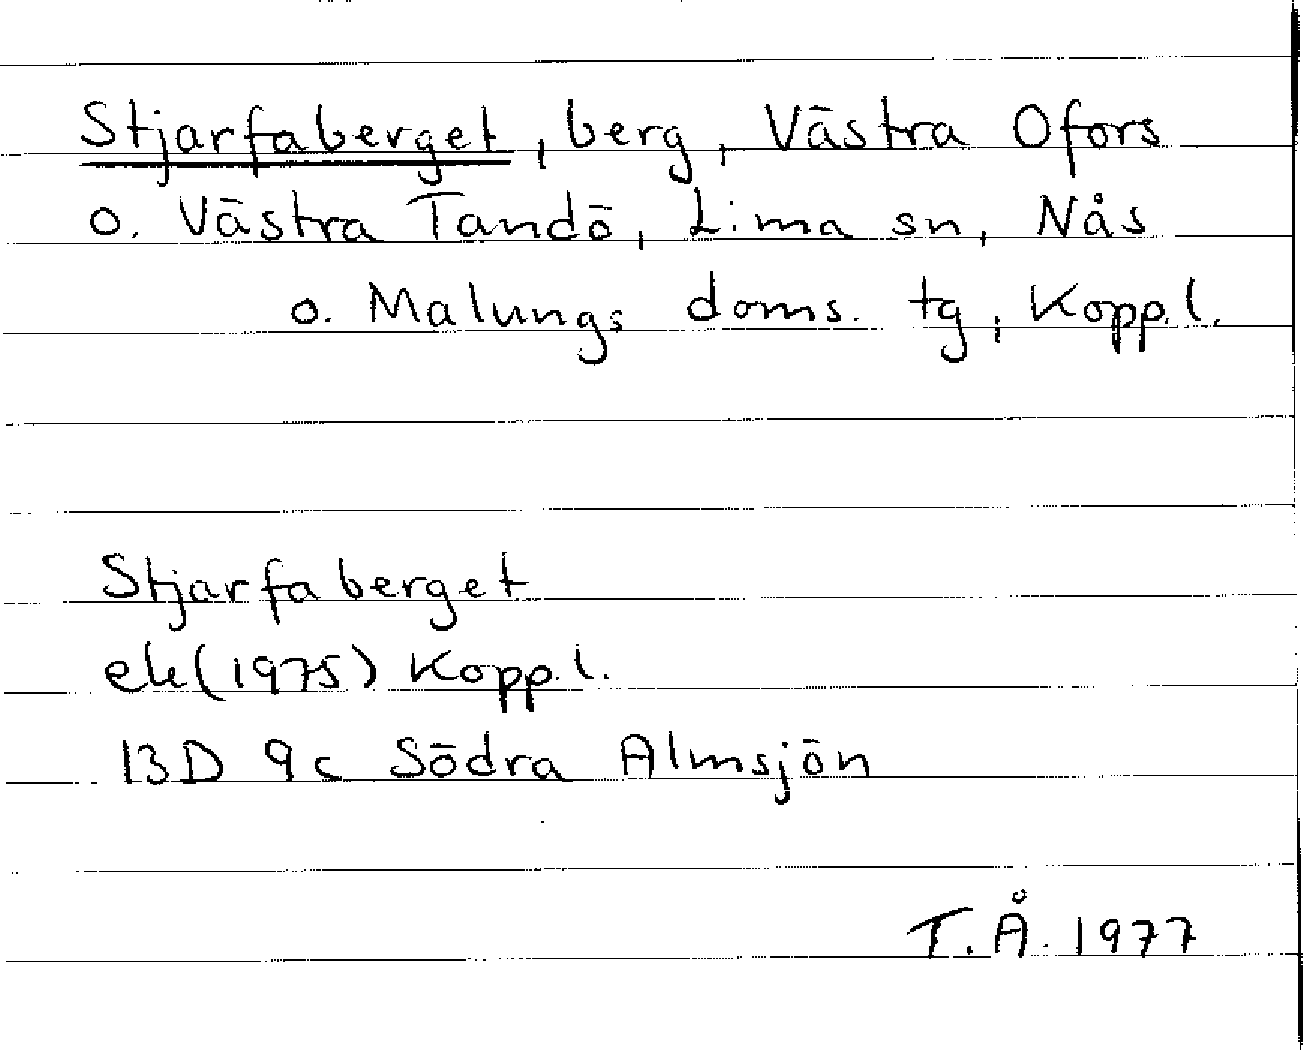 Stjarfaberget, berg, Västra Ofors
o. Västra Tandö, Lima sn, Nås
o. Malungs doms. tg, Kopp.l.
Stjarfaberget
ek(1975) Kopp.l.
13D 9c Södra Almsjön
T.Å. 1977